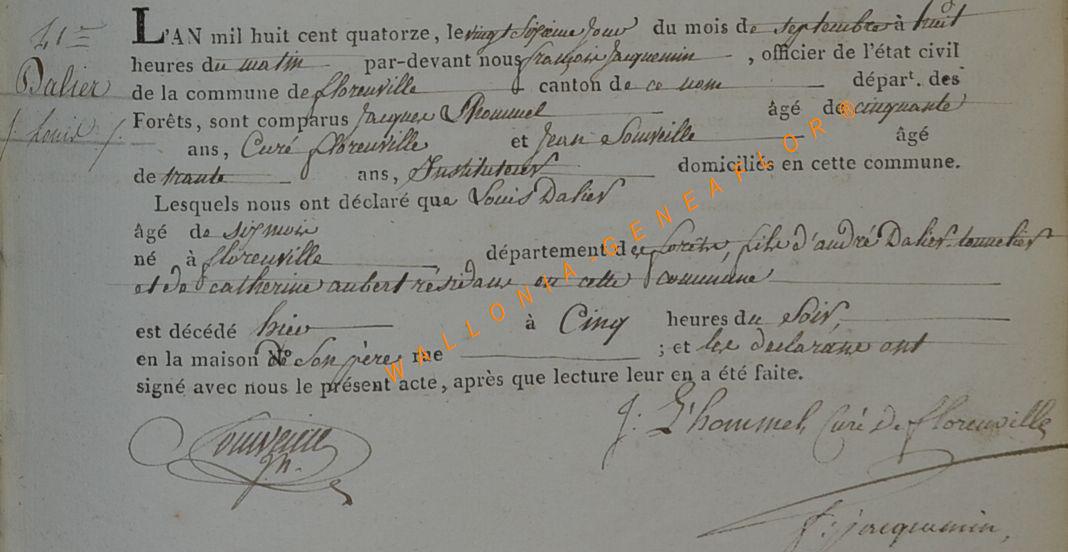 41=
Dalier
/ Louis /.
L'AN mil huit cent quatorze, le vingt sixieme jour du mois de septembre à huit
heures du matin par-devant nous françois Jacquemin, officier de l'état civil
de la commune de florenville canton de ce nom départ. des
Forêts, sont comparus Jacques L'hommel âgé de cinquante
ans, Curé florenville et Jean Somveille âgé
de trante ans, Instituteur domiciliés en cette commune.
Lesquels nous ont déclaré que Louis Dalier
âgé de six mois
né à florenville département des forêts, fils d'andré Dalier tonnelier
et de catherine aubert résidans en cette commune
est décédé hier à Cinq heures du Soir,
en la maison de son père, rue ; et les declarans ont
signé avec nous le présent acte, après que lecture leur en a été faite.
Somveille
J: L'hommel, Curé de florenville
f: jacquemin,
WALLONIA-GENEAFLOR®